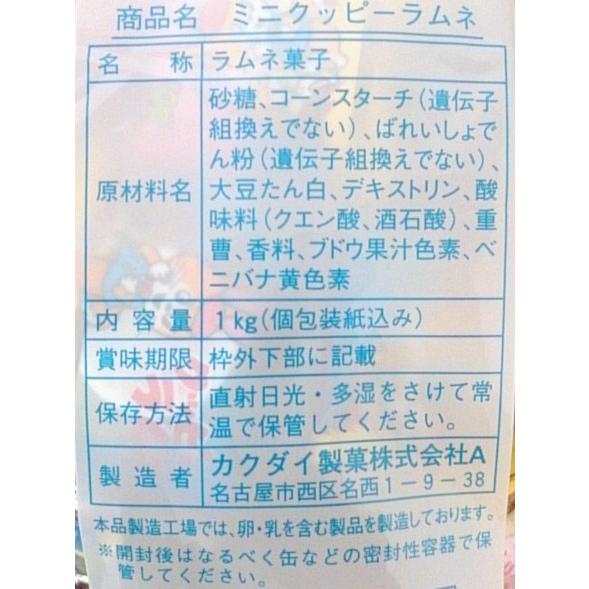 商品名 ミニクッピーラムネ
名称 ラムネ菓子
原材料名 砂糖、コーンスターチ(遺伝子
組換えでない)、ばれいしょで
ん粉(遺伝子組換えでない)、
大豆たん白、デキストリン、酸
味料(クエン酸、酒石酸)、重
曹、香料、ブドウ果汁色素、ベ
ニバナ黄色素
内容量 1kg(個包装紙込み)
賞味期限 枠外下部に記載
保存方法 直射日光・多湿をさけて常
温で保管してください。
製造者 カクダイ製菓株式会社A
名古屋市西区名西1-9-38
本品製造工場では、卵・乳を含む製品を製造しております。
※開封後はなるべく缶などの密封性容器で保
管してください。